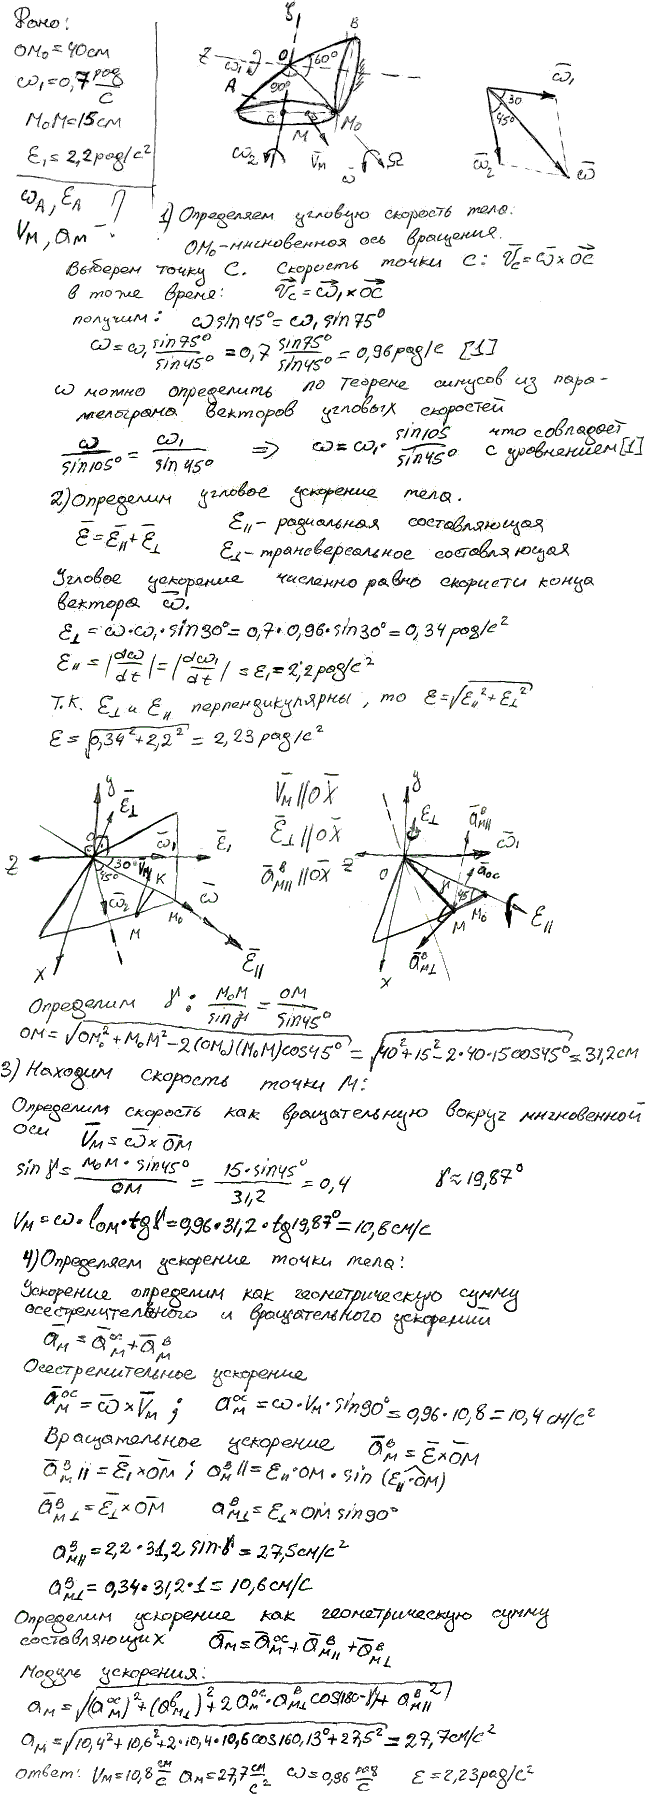 Дано:
OM₀=40см
ω₁=0,7 рад/с
M₀M=15см
ε₁=2,2рад/с²
ω_A, ε_A
V_M, a_M - ?
ξ
Z
O
B
ω₁
60°
A
90°
C
M
M₀
ω̄₂
V̄_M
ω̄
Ω
ω̄₁
30
45°
ω̄₂
ω̄
1) Определяем угловую скорость тела:
OM₀-мгновенная ось вращения.
Выберем точку C. Скорость точки C: V̄c=ω̄×OC
в тоже время: V̄c=ω̄₁×OC
получим: ωsin45°=ω₁sin75°
ω=ω₁ sin75°/sin45° =0,7 sin75°/sin45° =0,96рад/с [1]
ω можно определить по теореме синусов из пара-
лелограма векторов угловых скоростей
ω/sin105° = ω₁/sin45° ⇒ ω=ω₁· sin105/sin45° что совпадает
с уровнением[1]
2)Определим угловое ускорение тела.
ε̄=ε̄∥+ε̄⊥ ε∥- радиальная составляющая
ε⊥-трансверсальное составляющая
Угловое ускорение численно равно скорости конца
вектора ω̄.
ε⊥=ω·ω₁·sin30°=0,7·0,96·sin30°=0,34рад/с²
ε∥=|dω/dt|=|dω₁/dt|=ε₁=2,2рад/с²
Т.К. ε⊥ и ε∥ перпендикулярны, то ε=√(ε∥²+ε⊥²)
ε=√(0,34²+2,2²)=2,23рад/с²
y
ε̄⊥
O
Z
ω̄₁
ε̄₁
30°
V̄_M
45°
K
ω̄
ω̄₂
M
M₀
ε̄∥
x
V̄_M∥OX̄
ε̄⊥∥OX̄
āᴮ_M∥∥OX̄
y
ε⊥
āᴮ_M∥
ω̄₁
z
O
ā_OC
γ
45°
M
M₀
ε̄∥
āᴮ_M⊥
x
Определим γ: M₀M/sinγ = OM/sin45°
OM=√(OM₀²+M₀M²-2(OM₀)(M₀M)cos45°)=√(40²+15²-2·40·15cos45°)=31,2см
3) Находим скорость точки M:
Определим скорость как вращательную вокруг мгновенной
оси V̄_M=ω̄×ŌM
sinγ= M₀M·sin45°/OM = 15·sin45°/31,2 =0,4 γ≈19,87°
V_M=ω·l_OM·tgγ=0,96·31,2·tg19,87°=10,8см/с
4)Определяем ускорение точки тела:
Ускорение определим как геометрическую сумму
осестремительного и вращательного ускорений
ā_M=ā_M^ос+ā_M^в
Осестремительное ускорение
ā_M^ос=ω̄×V̄_M; a_M^ос=ω·V_M·sin90°=0,96·10,8=10,4см/с²
Вращательное ускорение ā_M^в=ε̄×ŌM
ā_M^в∥=ε̄₁×ŌM; a_M^в∥=ε∥·OM·sin(ε∥·OM)
ā_M⊥^в=ε̄⊥×ŌM a_M⊥^в=ε⊥×OM sin90°
a_M∥^в=2,2·31,2sinγ=27,5см/с²
a_M⊥^в=0,34·31,2·1=10,6см/с
Определим ускорение как геометрическую сумму
составляющих ā_M=ā_M^ос+ā_M∥^в+ā_M⊥^в
Модуль ускорения:
a_M=√((a_M^ос)²+(a_M⊥^в)²+2a_M^ос·a_M⊥^в cos(180-γ)+a_M∥^в²)
a_M=√(10,4²+10,6²+2·10,4·10,6cos160,13°+27,5²)=27,7см/с²
ответ: V_M=10,8см/с a_M=27,7см/с² ω=0,96рад/с ε=2,23рад/с²